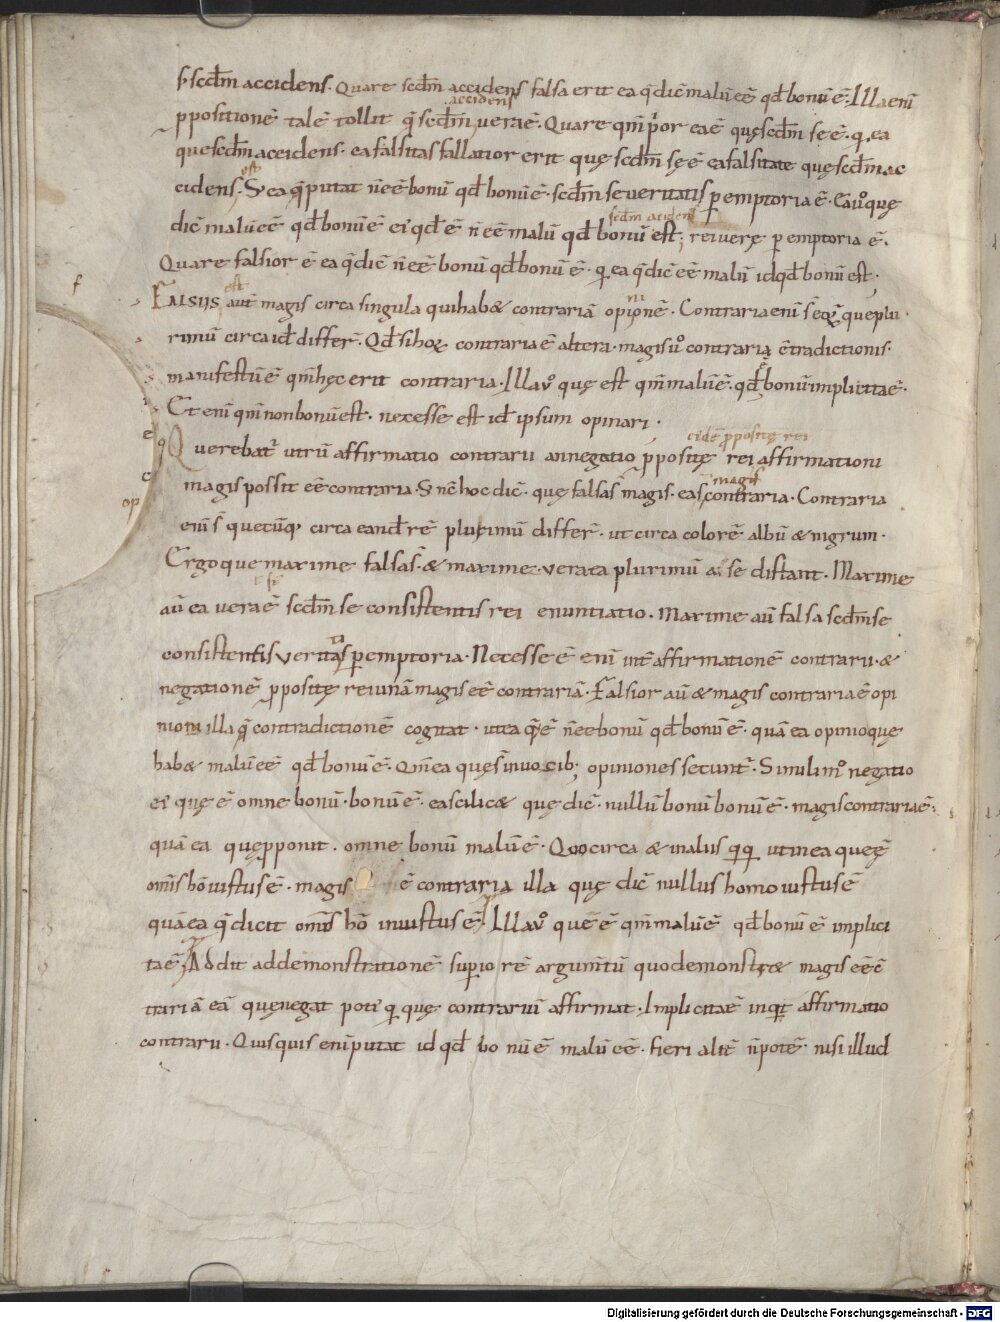 s; scdm accidens. Quare scdm accidens falsa erit ea q̄ dic̄ malū eē qd̄ bonū ē. Illa eni
accidens
ppositionē talē tollit q̄ scdm̄ uera ē. Quare qm̄ p̄or ea ē quę scdm̄ se ē. q̄ ea
que scdm̄ accidens. ea falsitas fallatior erit quę scdm̄ sę ē ea falsitate quę scdm̄ ac
est
cidens. S; ea q̄ putat n̄ eē bonū qd̄ bonū ē. scdm̄ se ueritatis pemptoria ē. Ea ūo quę
scdm̄ accidens
dic̄ malū eē qd̄ bonū ē ei' qd̄ ē n̄ eē malū qd̄ bonū est; rei uerę pemptoria ē.
Quare falsior ē ea q̄ dic̄ n̄ eē bonū qd̄ bonū ē. q̄ ea q̄ dic̄ eē malū id qd̄ bonū est.
f
est
FALSUS aut̄ magis circa singula qui habet contrariā opionē. Contraria eni s̄ eoꝝ que plu
ni
rimū circa id̄ differ̄. Qd̄ si hoꝝ contraria ē altera. magis ūo contraria ē tradictionis.
manifestū ē qm̄ hęc erit contraria. Illa ūo quę est qm̄ malū ē. qd̄ bonū implicita ē.
Et eni qm̄ non bonū est. necesse est id̄ ipsum opinari.
ei'dē pposite rei
Querebat' utrū affirmatio contrarii an negatio ppositę rei affirmationi
magis
magis possit eē contraria. S; nc̄ hoc dic̄. quę falsa s̄ magis. ea s̄ contraria. Contraria
op
eni s̄ quecūq; circa eand̄ rē plurimū differ̄. ut circa colorē albū & nigrum.
Ergo que maxime falsa s̄. & maxime. uera ta plurimū a se distant. Maxime
aū ea uera ē scdm̄ se consistentis rei enuntiatio. Maxime aū falsa scdm̄ se
consistentis ueritatis pemptoria. Necesse ē eni int̄ affirmationē contrarii. &
negationē ppositę rei unā magis eē contrariā. Falsior aū & magis contraria ē opi
nioni illa q̄ contradictionē cogitat. ut ea q̄ ē n̄ eē bonū qd̄ bonū ē. quā ea opinio quę
habet malū eē qd̄ bonū ē. Qm̄ ea quę s̄ in uocib; opiniones secunt'. Simili m̊ negatio
ei' quę ē omne bonū. bonū ē. ea scilicet que dic̄. nullū bonū bonū ē. magis contraria ē.
quā ea quę pponit. omne bonū malū ē. Quocirca & malus qq; ut in ea que ē
omīs hō iustus ē. magis ē contraria illa quę dic̄ nullus homo iustus ē
quā ea q̄ dicit omīs hō iniustus ē. Illa ūo que ē qm̄ malū ē qd̄ bonū ē implici
ta ē. Addit ad demonstrationē superiorē argumtū quo demonstret magis eē c̄
trariā eā quę negat poti' q̄ quę contrariū affirmat. Implicita ē inqt affirmatio
contrarii. Quisquis eni putat id qd̄ bonū ē malū eē. fieri alit̄ n̄ potē. nisi illud
Digitalisierung gefördert durch die Deutsche Forschungsgemeinschaft - DFG